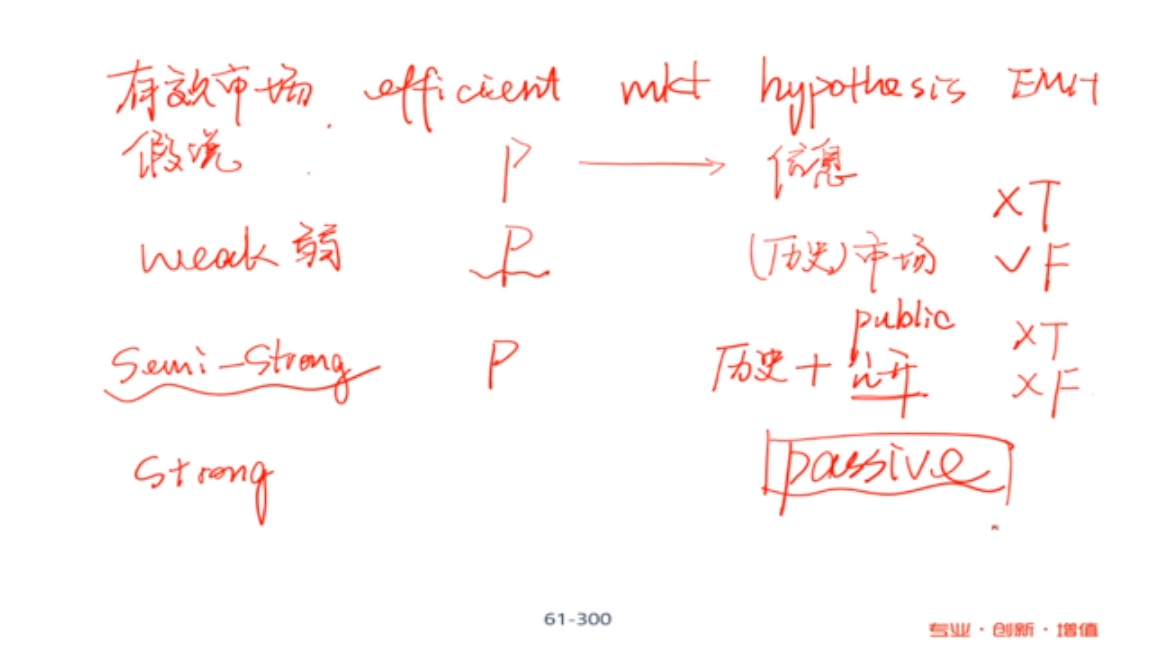 有效市场 efficient mkt hypothesis EMH
假说 P → 信息
XT
weak 弱 P (历史)市场 ✓F
public
Semi-Strong P 历史+公开 XT
XF
Strong passive
61-300
专业·创新·增值